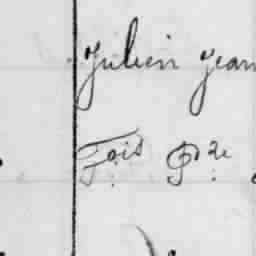 Julien Jean
Fois Pre